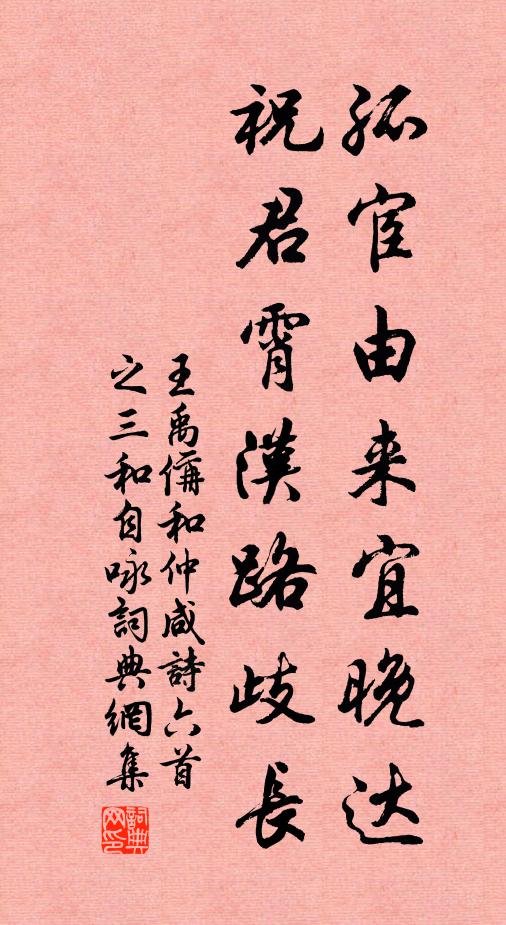 孤宦由来宜晚达
祝君霄漢路歧長
王禹偁和仲咸詩六首
之三和自咏詞典網集
詞典
网印